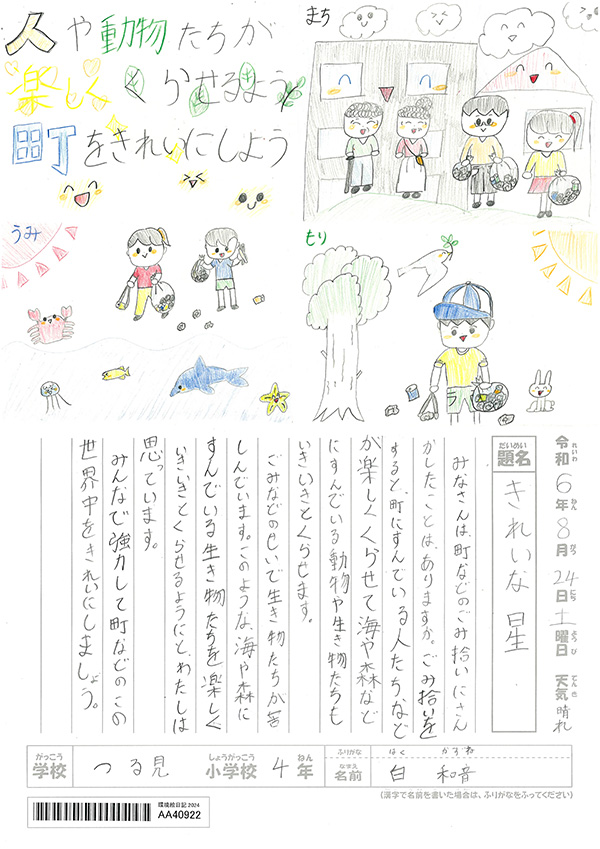 人や動物たちが
楽しくくらせるよう
町をきれいにしよう
まち
うみ
もり
令和6年8月24日土曜日 天気 晴れ
れいわ ねん がつ にち よう び てん き
だいめい
題名 きれいな星
みなさんは、町などのごみ拾いにさん
かしたことは、ありますか。ごみ拾いを
すると、町にすんでいる人たちなど
が楽しくくらせて海や森など
にすんでいる動物や生き物たちも
いきいきとくらせます。
ごみなどのせいで生き物たちが苦
しんでいます。このような、海や森に
すんでいる生き物たちを楽しく
いきいきとくらせるようにと、わたしは
思っています。
みんなで強力して町などのこの
世界中をきれいにしましょう。
がっこう しょうがっこう ねん ふりがな はく かずね
学校 つる見 小学校 4年 なまえ 名前 白 和音
(漢字で名前を書いた場合は、ふりがなをふってください)
環境絵日記 2024
AA40922